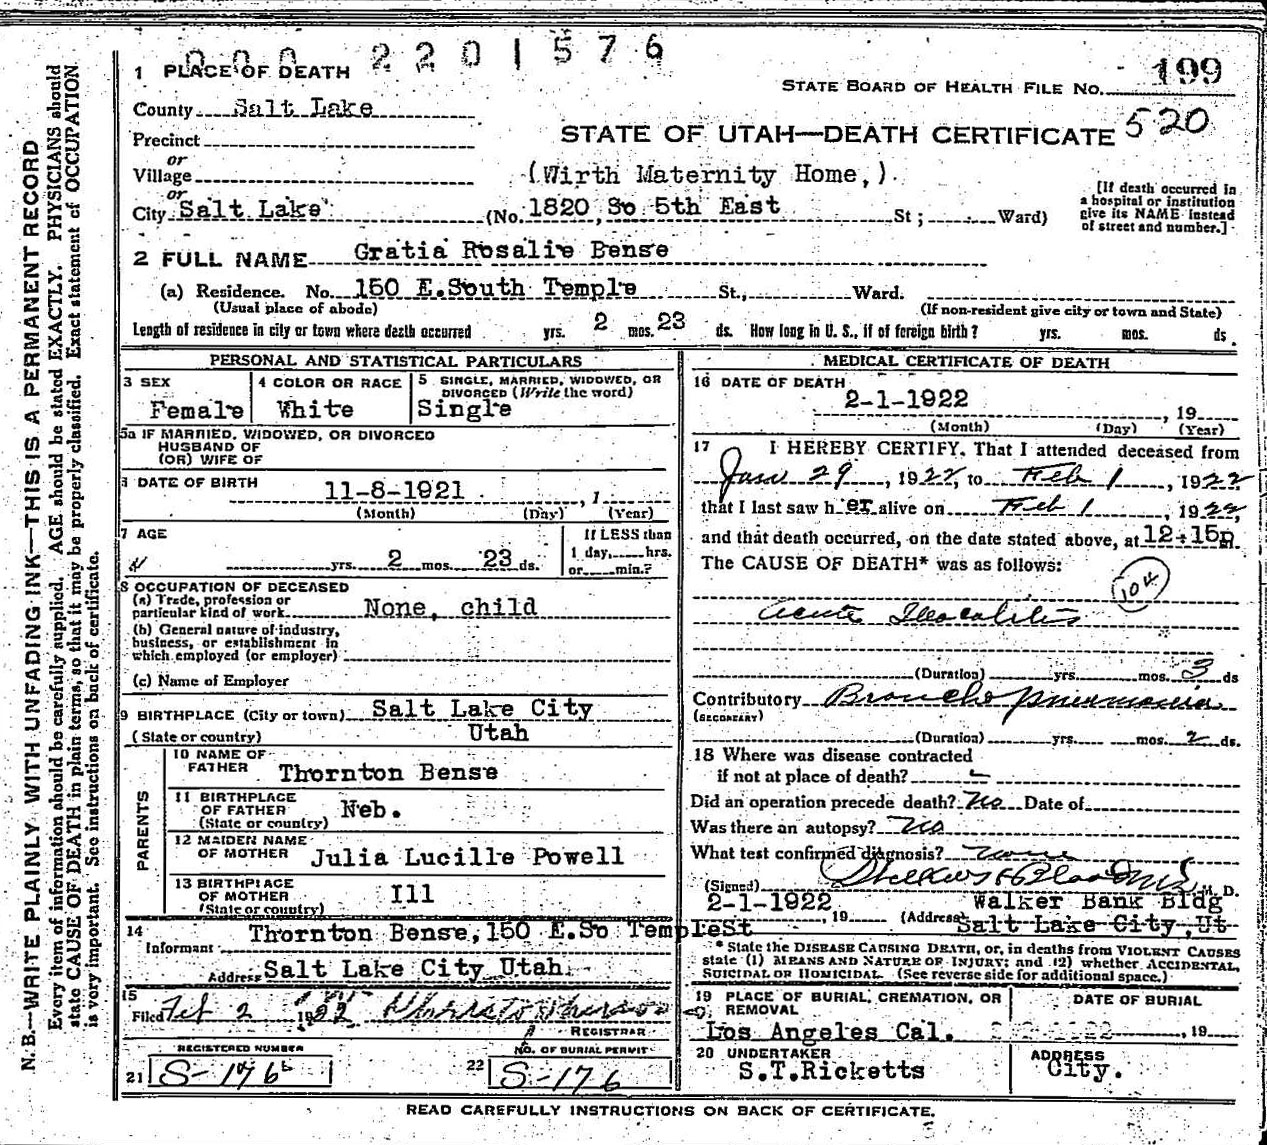 000 2201576
1 PLACE OF DEATH
STATE BOARD OF HEALTH FILE No. 199
County Salt Lake
520
STATE OF UTAH—DEATH CERTIFICATE
Precinct
or
Village
(Wirth Maternity Home,)
or
City Salt Lake (No. 1820 So 5th East St ; Ward)
[If death occurred in
a hospital or institution
give its NAME instead
of street and number.]
2 FULL NAME Gratia Rosalie Bense
(a) Residence. No. 150 E.South Temple St., Ward.
(Usual place of abode)
(If non-resident give city or town and State)
Length of residence in city or town where death occurred yrs. 2 mos. 23 ds. How long in U. S., if of foreign birth? yrs. mos. ds.
PERSONAL AND STATISTICAL PARTICULARS
3 SEX
Female
4 COLOR OR RACE
White
5 SINGLE, MARRIED, WIDOWED, OR
DIVORCED (Write the word)
Single
5a IF MARRIED, WIDOWED, OR DIVORCED
HUSBAND OF
(OR) WIFE OF
DATE OF BIRTH
11-8-1921 , 1
(Month) (Day) (Year)
7 AGE
yrs. 2 mos. 23 ds.
If LESS than
1 day, hrs.
or min.?
8 OCCUPATION OF DECEASED
(a) Trade, profession or
particular kind of work None, child
(b) General nature of industry,
business, or establishment in
which employed (or employer)
(c) Name of Employer
9 BIRTHPLACE (City or town) Salt Lake City
(State or country) Utah
PARENTS
10 NAME OF
FATHER Thornton Bense
11 BIRTHPLACE
OF FATHER Neb.
(State or country)
12 MAIDEN NAME
OF MOTHER Julia Lucille Powell
13 BIRTHPLACE
OF MOTHER Ill
(State or country)
14
Informant Thornton Bense, 150 E.So TempleSt
Address Salt Lake City Utah.
15
Filed Feb 2 1922
REGISTRAR
REGISTERED NUMBER
21 S-176
NO. OF BURIAL PERMIT
22 S-176
MEDICAL CERTIFICATE OF DEATH
16 DATE OF DEATH
2-1-1922 , 19
(Month) (Day) (Year)
17 I HEREBY CERTIFY, That I attended deceased from
Jan 29, 1922, to Feb 1, 1922
that I last saw h er alive on Feb 1, 1922,
and that death occurred, on the date stated above, at 12-15p
The CAUSE OF DEATH* was as follows:
104
Acute Ileocolitis
(Duration) yrs. mos. 3 ds
Contributory Broncho pneumonia
(SECONDARY)
(Duration) yrs. mos. 2 ds.
18 Where was disease contracted
if not at place of death?
Did an operation precede death? No Date of
Was there an autopsy? No
What test confirmed diagnosis? None
(Signed) M. D.
2-1-1922 , 19 (Address Walker Bank Bldg
Salt Lake City,Ut
* State the DISEASE CAUSING DEATH, or, in deaths from VIOLENT CAUSES
state (1) MEANS AND NATURE OF INJURY; and (2) whether ACCIDENTAL,
SUICIDAL OR HOMICIDAL. (See reverse side for additional space.)
19 PLACE OF BURIAL, CREMATION, OR
REMOVAL
Los Angeles Cal.
DATE OF BURIAL
, 19
20 UNDERTAKER
S.T.Ricketts
ADDRESS
City.
READ CAREFULLY INSTRUCTIONS ON BACK OF CERTIFICATE.
N. B.—WRITE PLAINLY WITH UNFADING INK—THIS IS A PERMANENT RECORD
Every item of information should be carefully supplied. AGE should be stated EXACTLY. PHYSICIANS should
state CAUSE OF DEATH in plain terms, so that it may be properly classified. Exact statement of OCCUPATION
is very important. See instructions on back of certificate.